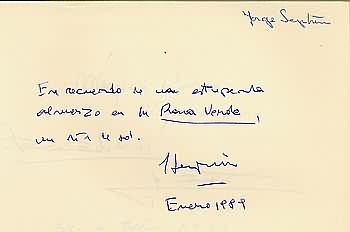 Jorge Semprún
En recuerdo de un estupendo
almuerzo en la Plana Verde,
un día de sol.
Semprún
Enero 1989